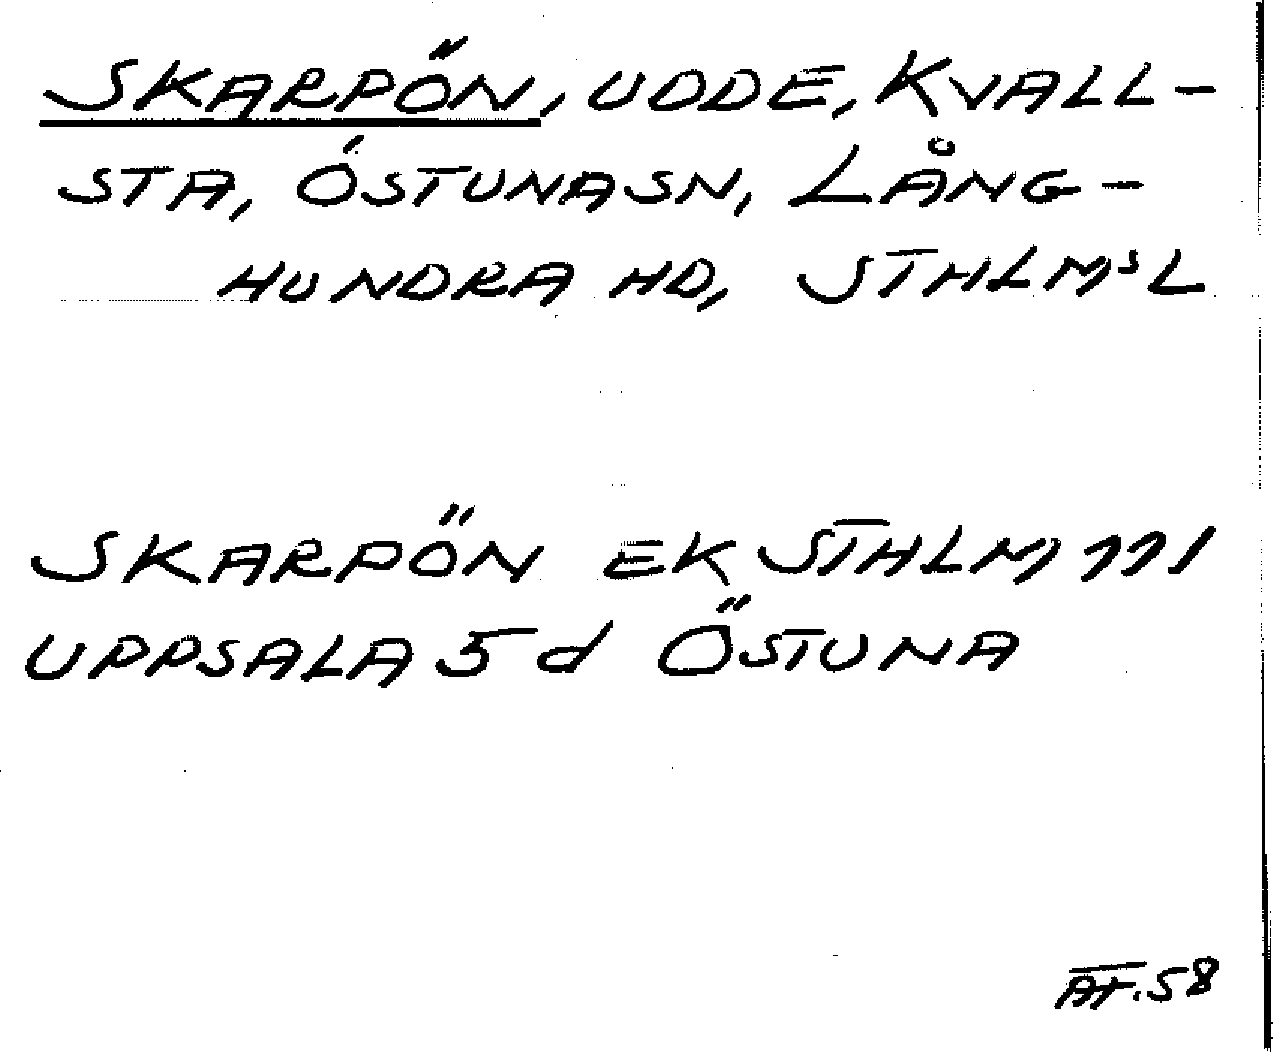 SKARPÖN, UDDE, KVALL-
STA, ÖSTUNA SN, LÅNG-
HUNDRA HD, STHLMS L
SKARPÖN EK STHLM 111
UPPSALA 5 d ÖSTUNA
AF. 58